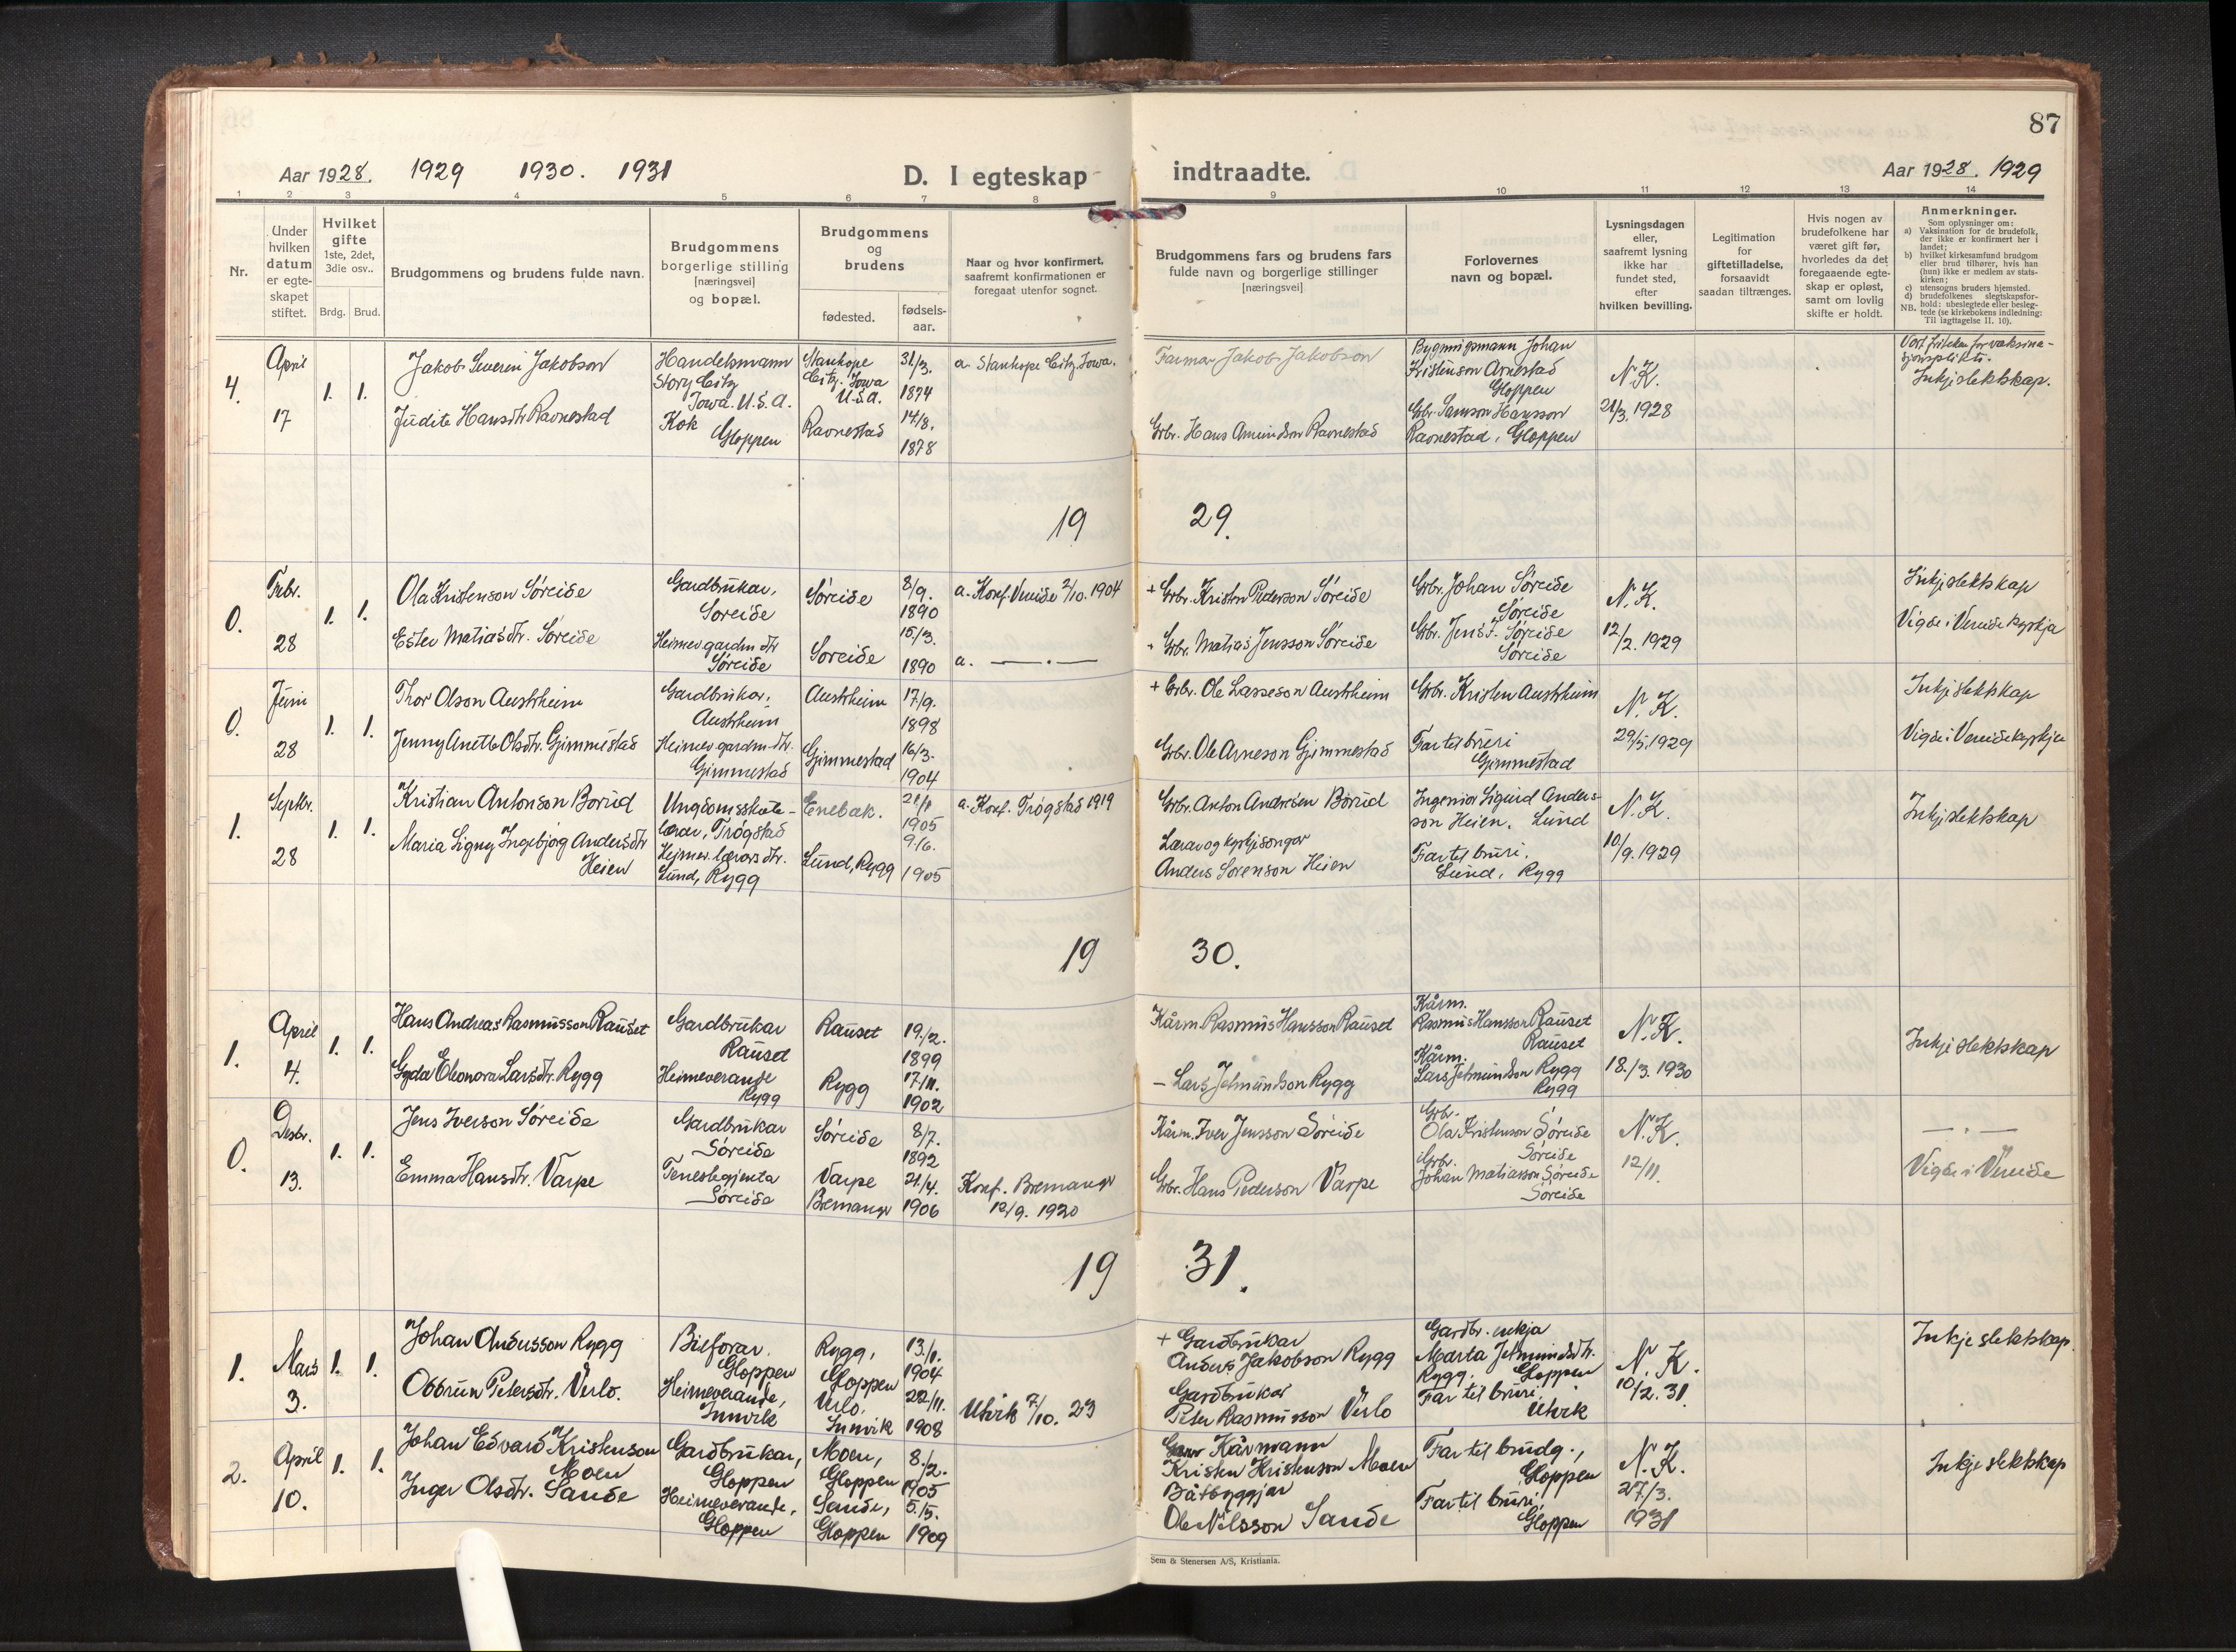 87
Aar 1928. 1929 1930. 1931
D. I egteskap indtraadte.
Aar 1928. 1929
1 2 3 4 5 6 7 8 9 10 11 12 13 14
Nr.
Under
hvilken
datum
er egte-
skapet
stiftet.
Hvilket
gifte
1ste, 2det,
3die osv..
Brdg. Brud.
Brudgommens og brudens fulde navn.
Brudgommens
borgerlige stilling
[næringsvei]
og bopæl.
Brudgommens
og
brudens
fødested.
fødsels-
aar.
Naar og hvor konfirmert,
saafremt konfirmationen er
foregaat utenfor sognet.
Brudgommens fars og brudens fars
fulde navn og borgerlige stillinger
[næringsvei]
Forlovernes
navn og bopæl.
Lysningsdagen
eller,
saafremt lysning
ikke har
fundet sted,
efter
hvilken bevilling.
Legitimation
for
giftetilladelse,
forsaavidt
saadan tiltrænges.
Hvis nogen av
brudefolkene har
været gift før,
hvorledes da det
foregaaende egte-
skap er opløst,
samt om lovlig
skifte er holdt.
Anmerkninger.
Som oplysninger om:
a) Vaksination for de brudefolk,
der ikke er konfirmert her i
landet;
b) hvilket kirkesamfund brudgom
eller brud tilhører, hvis han
(hun) ikke er medlem av stats-
kirken;
c) utensogns bruders hjemsted.
d) brudefolkenes slegtskapsfor-
hold: ubeslegtede eller besleg-
tede (se kirkebokens indledning:
NB. Til iagttagelse II. 10).
4.
April
17
1. 1.
Jakob Severin Jakobson
Judite Hansdtr Ravnestad
Handelsmann
Story City
Iowa. U.S.A.
Kok
Gloppen
Stanhope
City. Iowa
U.S.A.
Ravnestad
31/3.
1874
14/8.
1878
a. Stanhope City. Iowa.
Farmar Jakob Jakobson
Grbr. Hans Amundson Ravnestad
Bygningsmann Johan
Kristenson Arnestad
Gloppen
Grbr. Samson Hansson
Ravnestad, Gloppen
N.K.
21/3. 1928
Vart friteken for vaksina-
sjonsplikti.
Inkje slektskap.
1929.
0.
Febr.
28
1. 1.
Ola Kristenson Søreide
Ester Matiasdtr. Søreide
Gardbrukar,
Søreide
Heimev. gardm dtr
Søreide
Søreide
Søreide
8/9.
1890
15/3.
1890
a. Konf. Vereide 2/10. 1904
a. — . —
+ Grbr. Kristen Pederson Søreide
Grbr. Matias Jensson Søreide
Grbr. Johan Søreide
Søreide
Grbr. Jens I. Søreide
Søreide
N.K.
12/2. 1929
Inkje slektskap
Vigde i Vereide kyrkja
0.
Juni
28
1. 1.
Thor Olson Austrheim
Jenny Anette Olsdtr. Gjimmestad
Gardbrukar,
Austrheim
Heimev. gardm.dtr.
Gjimmestad
Austrheim
Gjimmestad
17/9.
1898
16/3.
1904
+ Grbr. Ole Lasseson Austrheim
Grbr. Ole Arneson Gjimmestad
Grbr. Kristen Austrheim
Far til bruri
Gjimmestad
N.K.
29/5. 1929
Inkje slektskap
Vigde i Vereide kyrkja
1.
Septbr.
28
1. 1.
Kristian Antonson Borud
Maria Signy Ingebjørg Andersdtr
Heien
Ungdomsskule-
lærar, Trøgstad
Heimev. lærars dtr.
Lund, Rygg
Enebak.
Lund, Rygg
21/1
1905
9/6.
1905
a. Konf. Trøgstad 1919
Grbr. Anton Andresen Borud
Lærar og kyrkjesongar
Anders Sørenson Heien
Ingeniør Sigurd Anders-
son Heien. Lund
Far til bruri.
Lund, Rygg
N.K.
10/9. 1929
Inkje slektskap
1930.
1.
April
4.
1. 1.
Hans Andreas Rasmusson Rauset
Gyda Eleonora Larsdtr. Rygg
Gardbrukar
Rauset
Heimeverande
Rygg
Rauset
Rygg
19/2.
1899
17/11.
1902
Kårm. Rasmus Hansson Rauset
— Lars Jetmundson Rygg
Kårm.
Rasmus Hansson Rauset
Rauset
Kårm.
Lars Jetmundson Rygg
Rygg
N.K.
18./3. 1930
Inkje slektskap
0.
Desbr.
13.
1. 1.
Jens Iverson Søreide
Emma Hansdtr. Varpe
Gardbrukar
Søreide
Tenestegjenta
Søreide
Søreide
Varpe
Bremanger
8/7.
1892
21/4.
1906
Konf. Bremanger
12/9. 1920
Kårm. Iver Jensson Søreide
Grbr. Hans Pederson Varpe
Grbr.
Ola Kristenson Søreide
Søreide
Grbr.
Johan Matiasson Søreide
Søreide
N.K.
12/11.
— . —
Vigde i Vereide
1931.
1.
Mars
3.
1. 1.
Johan Andersson Rygg
Oddrun Petersdtr. Verlo.
Bilførar.
Gloppen
Heimeverande,
Innvik
Rygg,
Gloppen
Verlo,
Innvik
13/1.
1904
22/11.
1908
Utvik 7/10. 23
+ Gardbrukar
Anders Jakobson Rygg
Gardbrukar
Peter Rasmusson Verlo
Gardbr. enkja
Marta Jetmundsdtr.
Rygg. Gloppen
Far til bruri.
Utvik
N.K.
10/2. 31.
Inkje slektskap.
2.
April
10.
1. 1.
Johan Edvard Kristenson
Moen
Inger Olsdtr. Sande
Gardbrukar,
Gloppen
Heimeverande,
Gloppen
Moen,
Gloppen
Sande,
Gloppen
8./2.
1905
5./5.
1909
Kårmann
Kristen Kristenson Moen
Båtbyggjar
Ole Nilsson Sande
Far til brudg.,
Gloppen
Far til bruri,
Gloppen
N.K.
27/3.
1931
Inkje slektskap
Sem & Stenersen A/S, Kristiania.